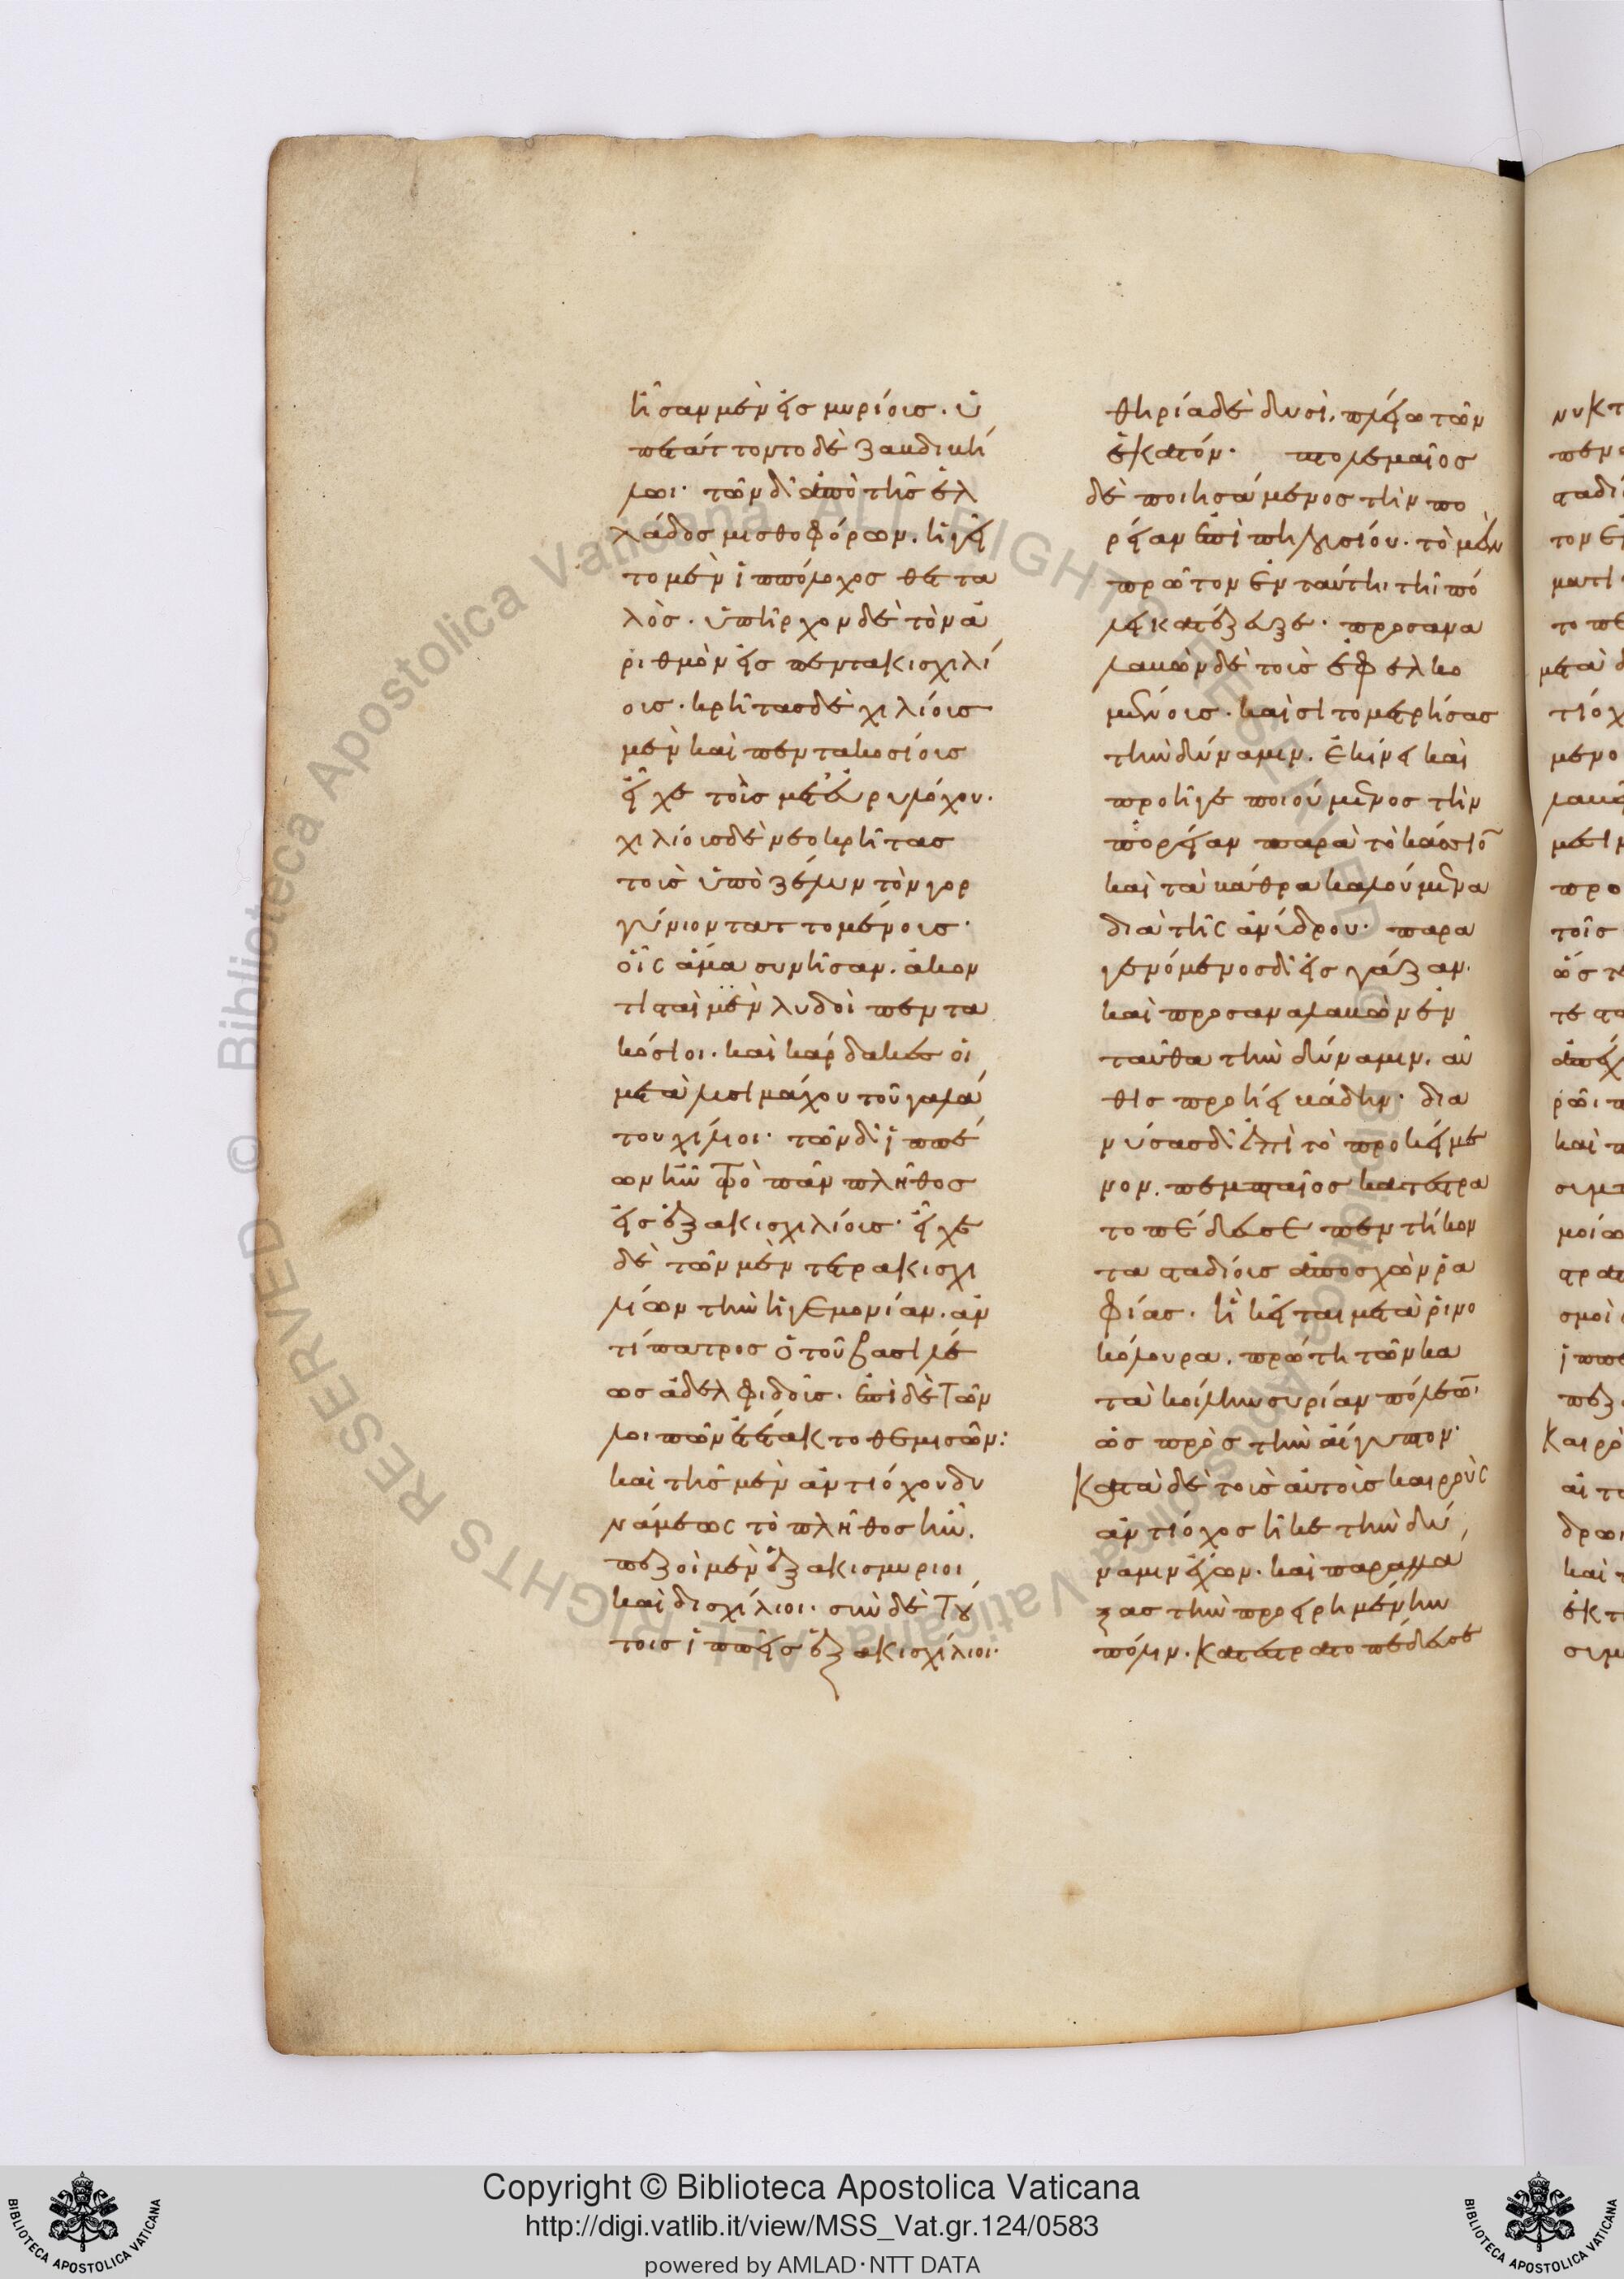 ἦσαν μὲν εἰς μυρίους. ὑ
πετάττοντο δὲ ζαυδικη
λωι· τῶν δ' ἀπὸ τῆς ἑλ
λάδος μισθοφόρων. ἡγεῖ
το μὲν ἱππόλοχος θετα
λὸς. ὑπῆρχον δὲ τὸν ἀ
ριθμὸν εἰς πεντακισχιλί
ους. κρῆτας δὲ χιλίους
μὲν καὶ πεντακοσίους
εἶχε τοὺς μετ' εὐρυλόχου.
χιλίους δὲ νεοκρῆτας
τοὺς ὑπὸ ζέλυν τὸν γορ
γύνιον ταττομένους·
οἷς ἅμα συνῆσαν. ἀκον
τισταὶ μὲν λυδοὶ πεντα
κόσιοι. καὶ κάρδακες οἱ
μετὰ λυσιμάχου τοῦ γαλά
του χίλιοι· τῶν δ' ἱππέ
ων ἦν τὸ πᾶν πλῆθος
εἰς ἑξακισχιλίους· εἶχε
δὲ τῶν μὲν τετρακισχι
λίων τὴν ἡγεμονίαν. ἀν
τίπατρος ὁ τοῦ βασιλέ
ως ἀδελφιδοῦς. ἐπὶ δὲ τῶν
λοιπῶν ἐτέτακτο θεμισων:
καὶ τῆς μὲν ἀντιόχου δυ
νάμεως τὸ πλῆθος ἦν.
πεζοὶ μὲν ἑξακισμυριοι
καὶ δισχίλιοι· σὺν δὲ τού
τοις ἱππεῖς ἑξακισχίλιοι·
θηρία δὲ δυσὶ. πλείω τῶν
ἑκατόν· πτολεμαῖος
δὲ ποιησάμενος τὴν πο
ρείαν ἐπὶ πηλούσιον. τὸ μὲν
πρῶτον ἐν ταύτηι τῆι πό
λει κατέζευξε. προσανα
λαβὼν δὲ τοὺς ἐφελκο
μένους. καὶ σιτομετρήσας
τὴν δύναμιν. ἐκίνει καὶ
προῆγε ποιούμενος τὴν
πορείαν παρὰ τὸ κάσιον
καὶ τὰ βάθρα καλούμενα
διὰ τῆς ἀνύδρου· παρα
γενόμενος δ' εἰς γάζαν.
καὶ προσαναλαβὼν ἐν
ταῦθα τὴν δύναμιν. αὖ
θις προήει βάδην· δια
νύσας δ' ἐπὶ τὸ προκείμε
νον. πεμπταῖος κατεστρα
τοπέδευσε πεντήκον
τα σταδίους ἀποσχὼν ῥα
φίας. ἣ κεῖται μετὰ ῥινο
κόλουρα. πρώτη τῶν κα
τὰ κοίλην συρίαν πόλεων
ὡς πρὸς τὴν αἴγυπτον·
κατὰ δὲ τοὺς αὐτοὺς καιροὺς
ἀντίοχος ἧκε τὴν δύ
ναμιν ἔχων. καὶ παραλλά
ξας τὴν προειρημένην
πόλιν. κατεστρατοπέδευσε
Copyright © Biblioteca Apostolica Vaticana
http://digi.vatlib.it/view/MSS_Vat.gr.124/0583
powered by AMLAD·NTT DATA